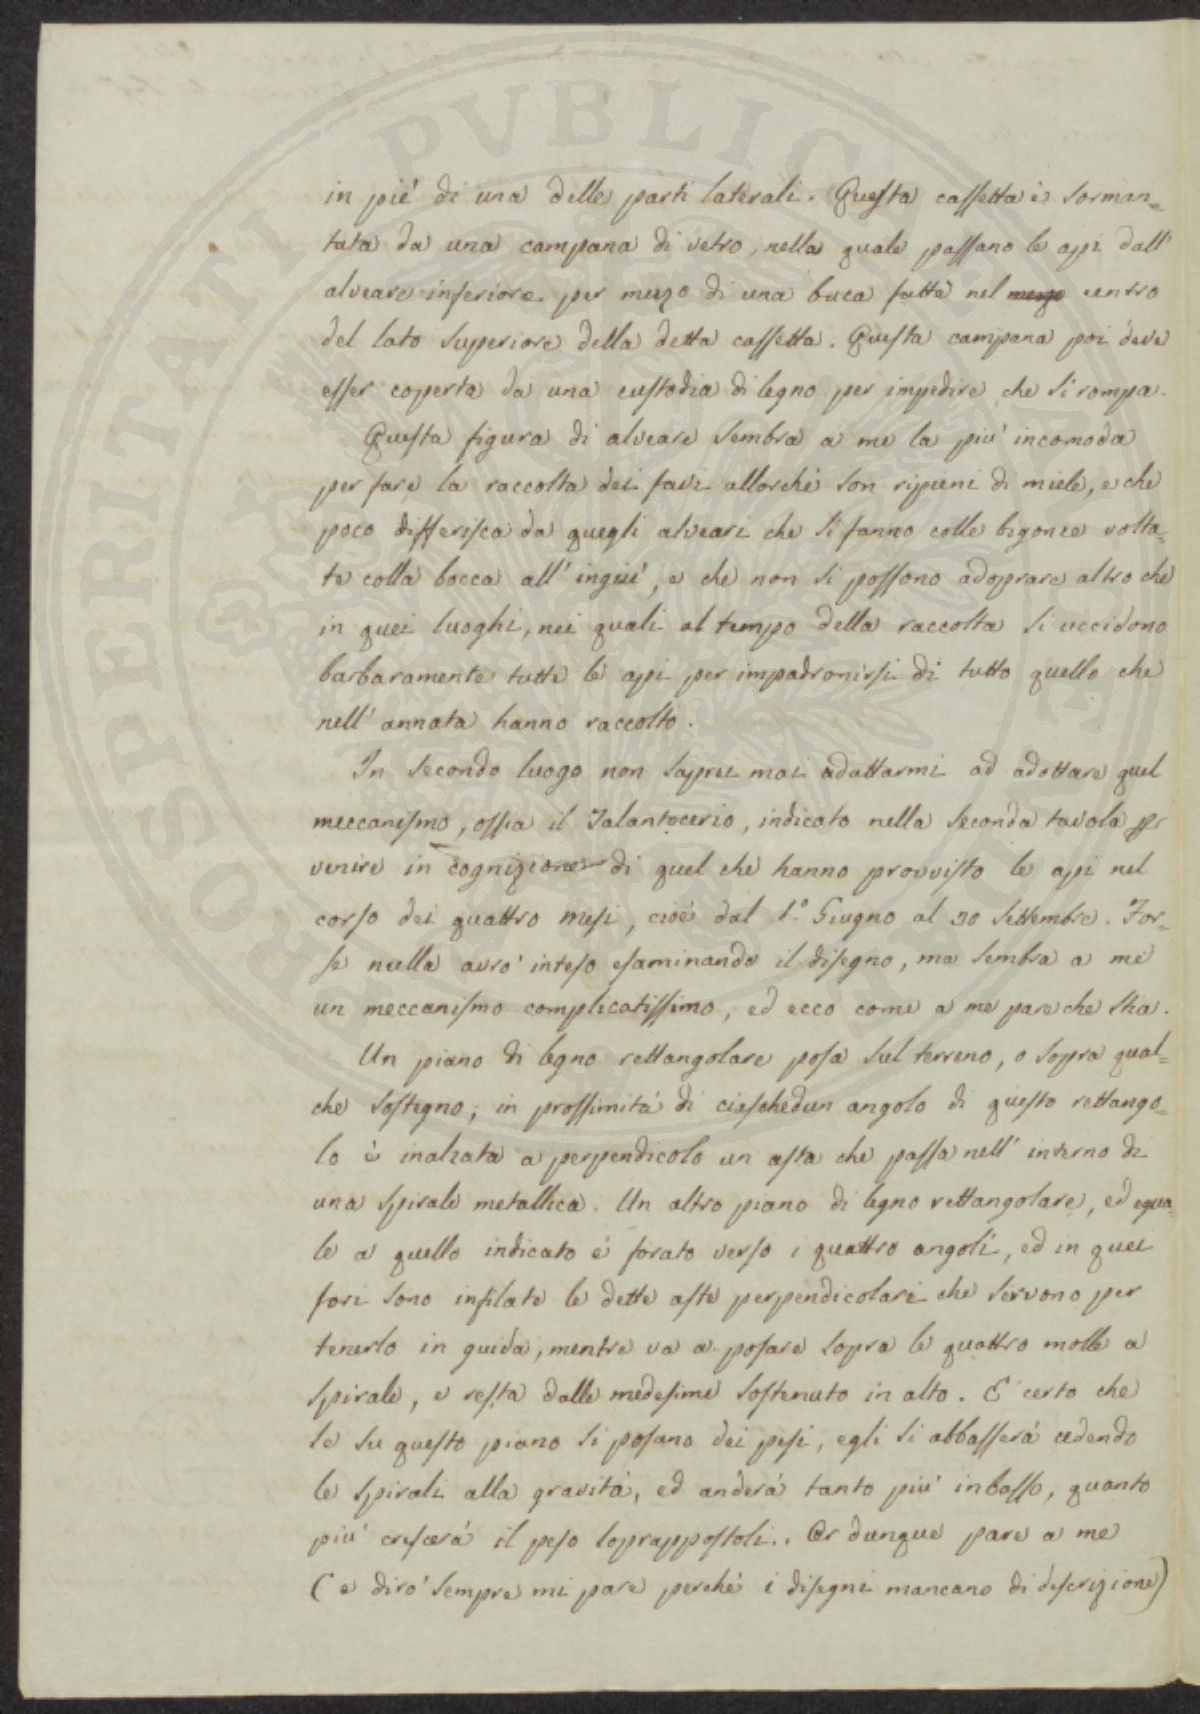 in pié di una delle parti laterali. Questa cassetta è sorman=
tata da una campana di vetro, nella quale passano le api dall'
alveare inferiore per mezzo di una buca fatta nel mezzo centro
del lato superiore della detta cassetta. Questa campana poi deve
esser coperta da una custodia di legno per impedire che si rompa.
Questa figura di alveare sembra a me la piu' incomoda
per fare la raccolta dei favi allorché son ripieni di miele, e che
poco differisca da quegli alveari che si fanno colle bigonce volta=
te colla bocca all' ingiù, e che non si possono adoprare altro che
in quei luoghi, nei quali al tempo della raccolta si uccidono
barbaramente tutte le api per impadronirsi di tutto quello che
nell' annata hanno raccolto.
In secondo luogo non saprei mai adattarmi ad adottare quel
meccanismo, ossia il Talantocerio, indicato nella seconda tavola per
venire in cognizione di quel che hanno provvisto le api nel
corso dei quattro mesi, cioè dal 1.º Giugno al 30 Settembre. For=
se nulla avro' inteso esaminando il disegno, ma sembra a me
un meccanismo complicatissimo, ed ecco come a me pare che stia.
Un piano di legno rettangolare posa sul terreno, o sopra qual=
che sostegno; in prossimità di ciaschedun angolo di questo rettango=
lo è inalzata a perpendicolo un asta che passa nell' interno di
una spirale metallica. Un altro piano di legno rettangolare, ed egua=
le a quello indicato é forato verso i quattro angoli, ed in quei
fori sono infilate le dette aste perpendicolari che servono per
tenerlo in guida, mentre va a posare sopra le quattro molle a
spirale, e resta dalle medesime sostenuto in alto. E' certo che
se su questo piano si posano dei pesi, egli si abbasserà cedendo
le spirali alla gravità, ed anderà tanto piu' inbasso, quanto
piu' crescerà il peso soprappostoli.. Or dunque pare a me
(e diro' sempre mi pare perché i disegni mancano di descrizione)
PVBLICAE
PROSPERITATI